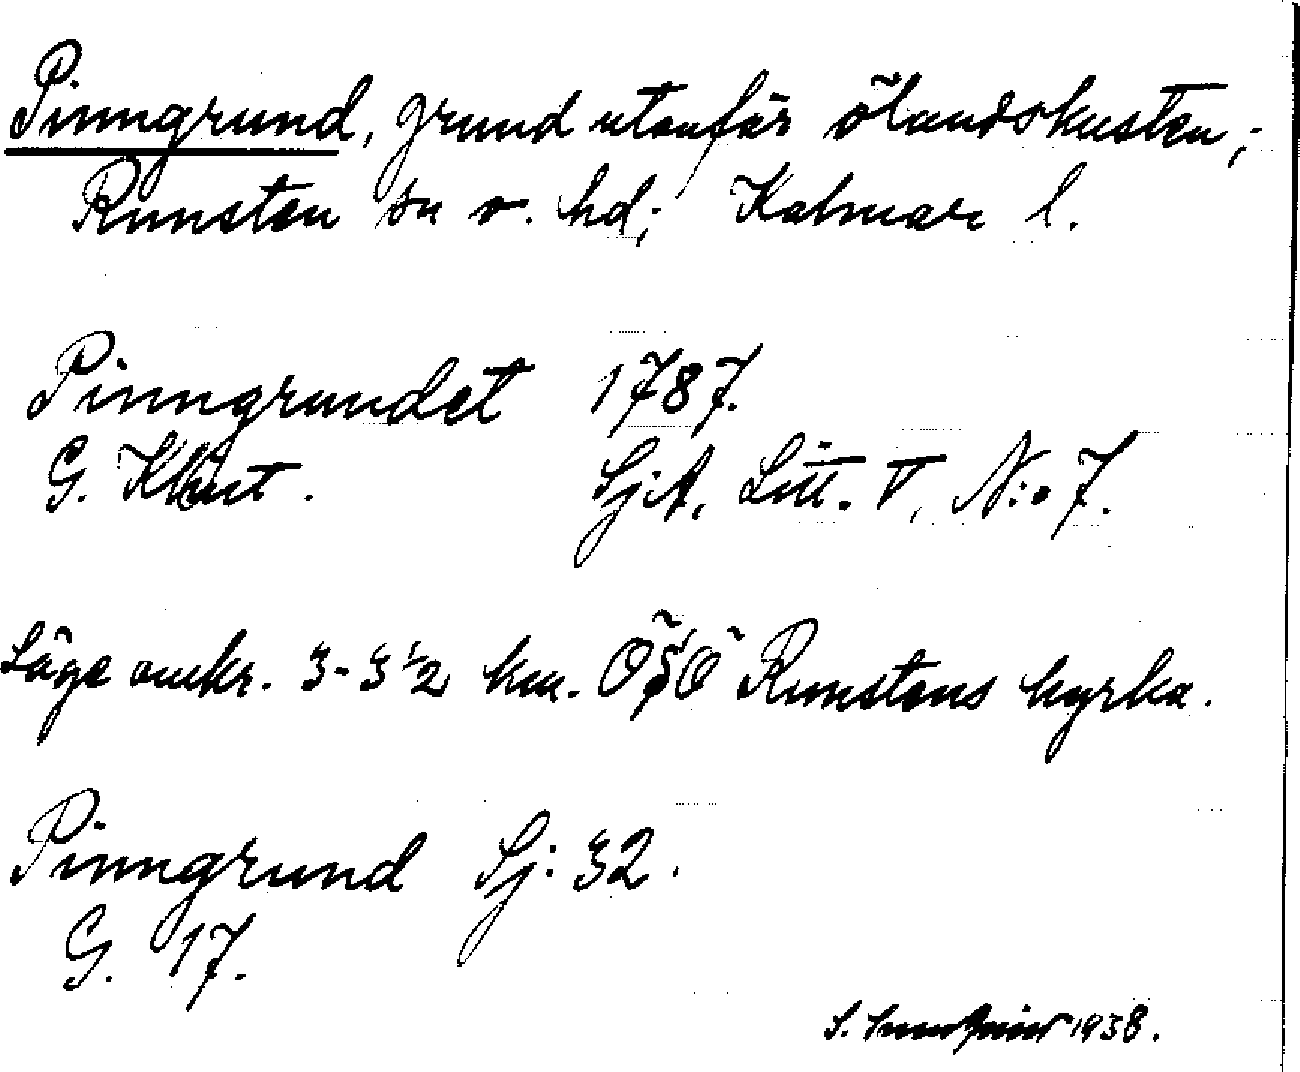 Pinngrund, grund utanför ölandskusten,;
Runsten sn o. hd; Kalmar l.
Pinngrundet 1787.
G. Klint. SjA, Litt. V, N:o 7.
Läge omkr. 3-3 1/2 km. ÖSÖ Runstens kyrka.
Pinngrund Sj: 32.
G. 17.
S. 1938.